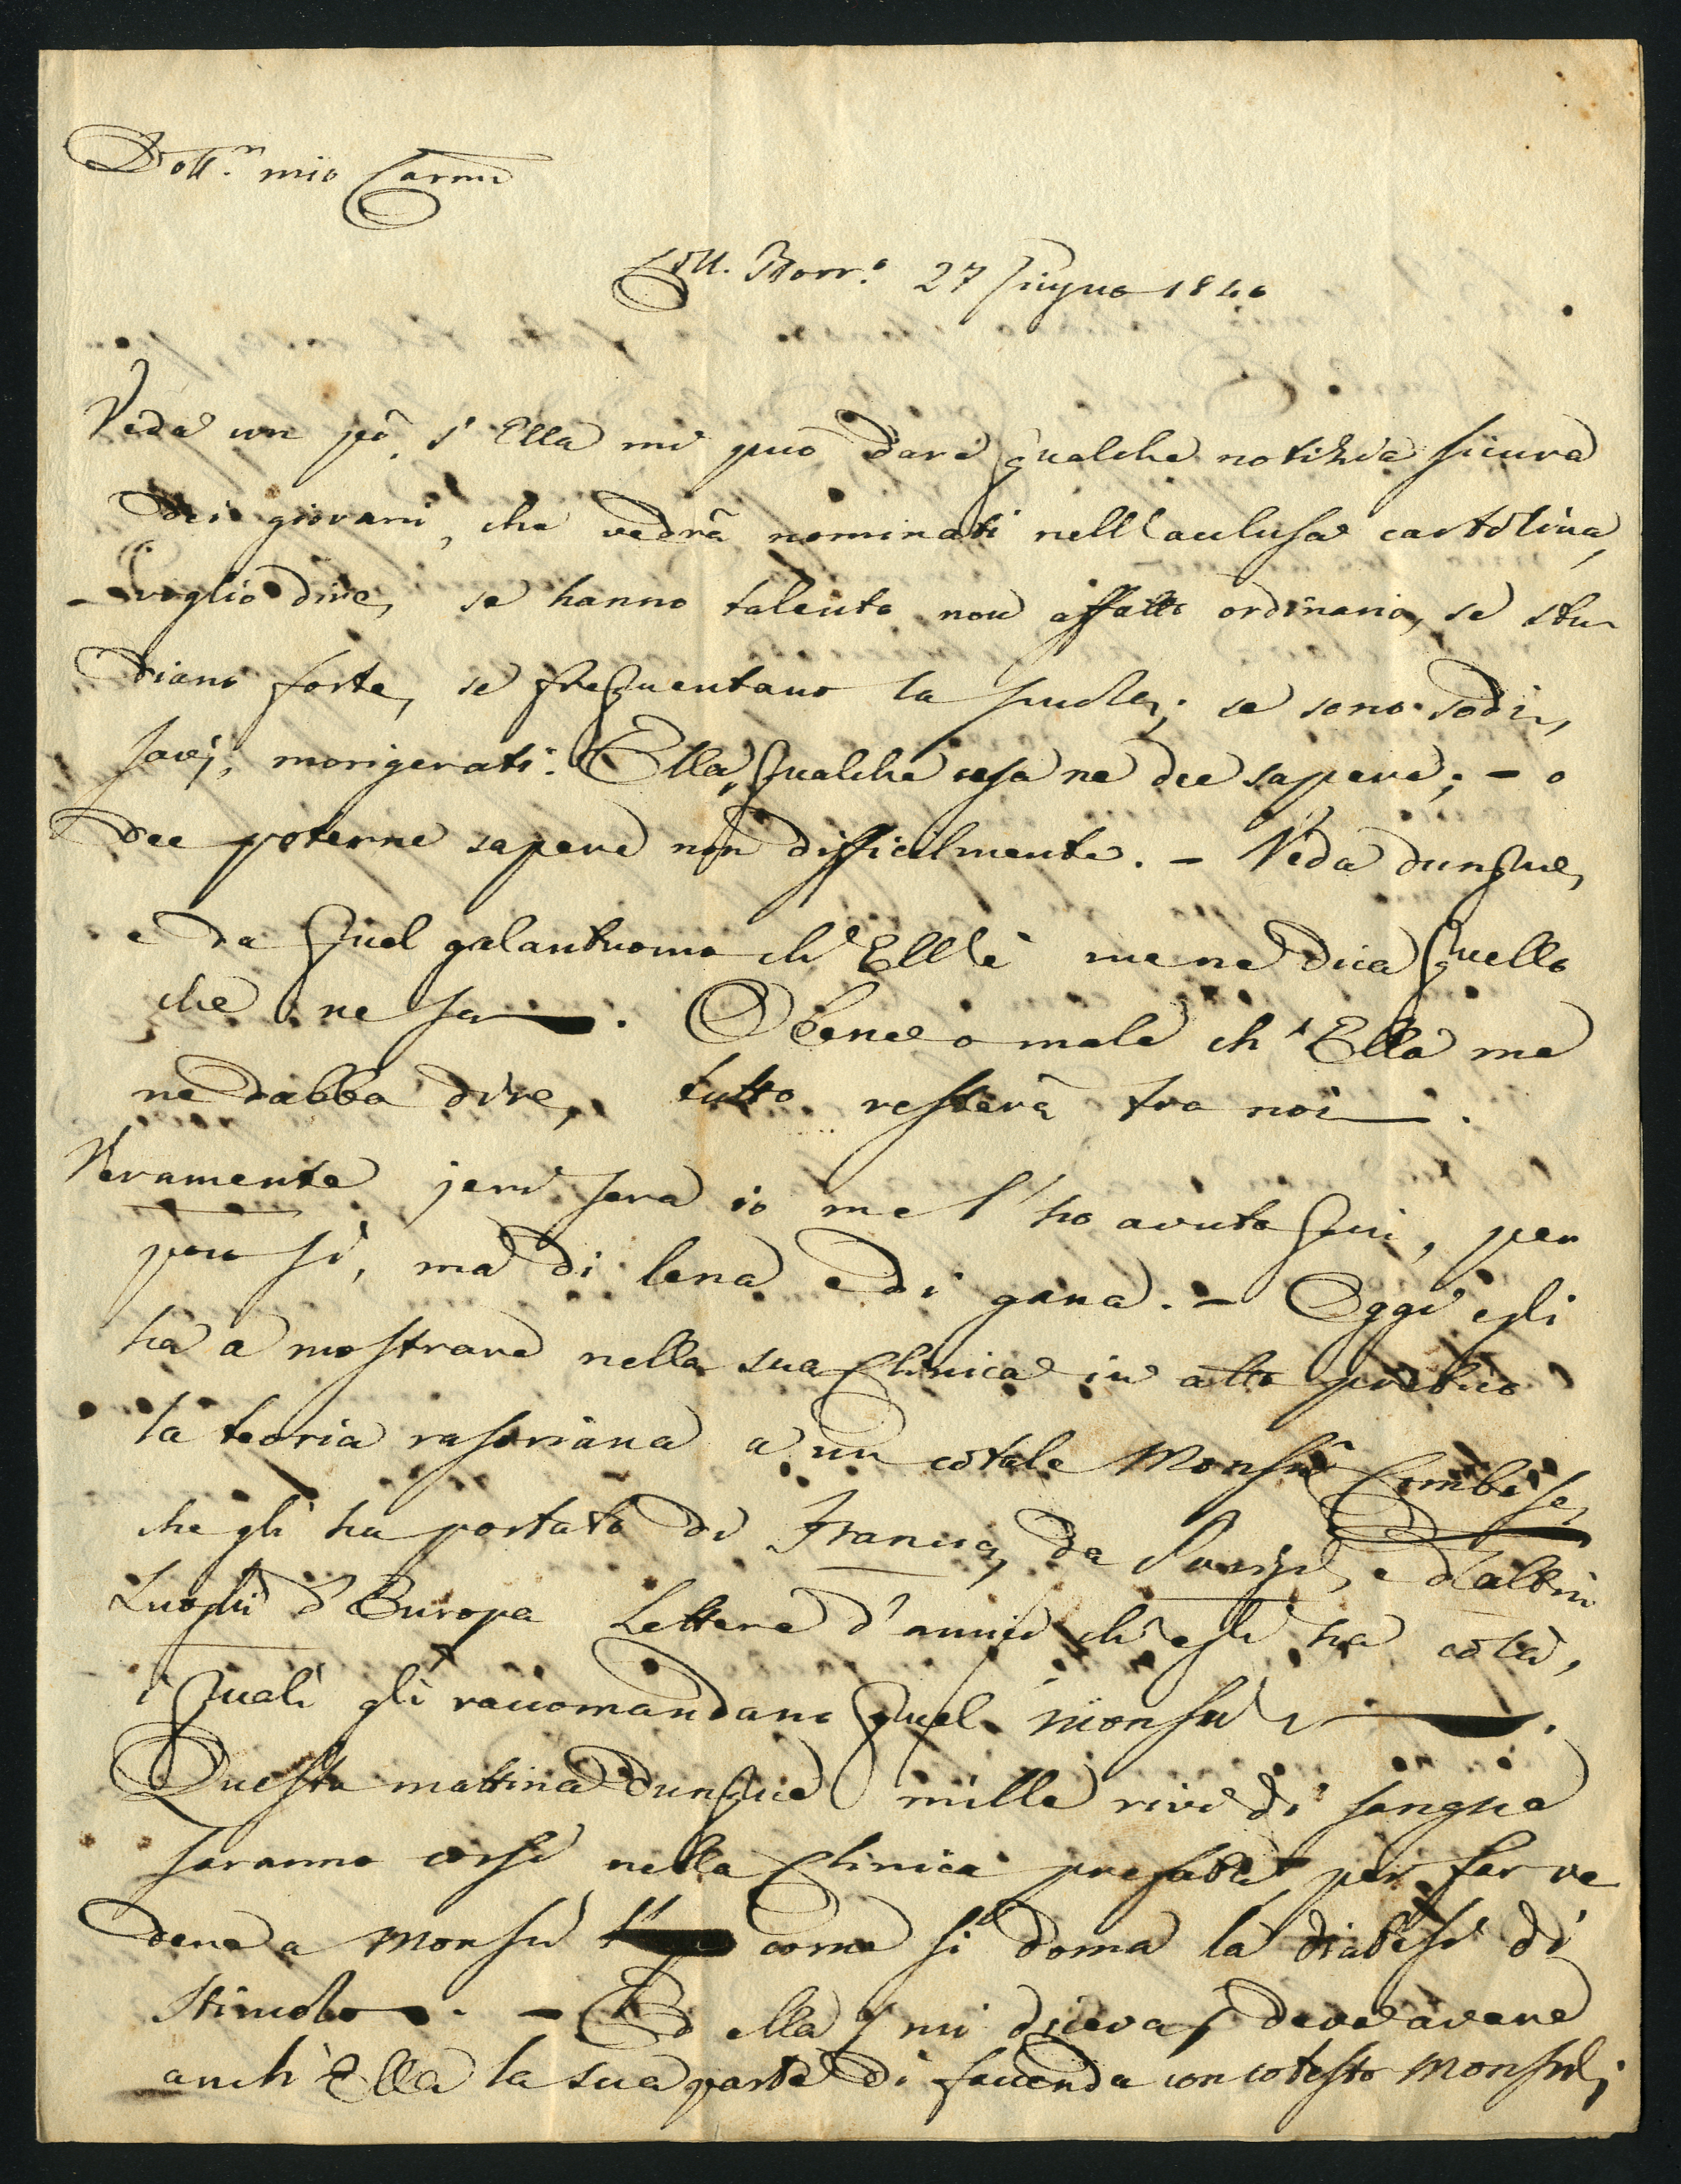 Dott.r mio Carmo
Coll. Borr.o 27 Giugno 1840
Veda un pò s'Ella mi può dare qualche notizia sicura
dei giovani, che vedrà nominati nell'acclusa cartolina,
- voglio dire, se hanno talento non affatto ordinario, se stu-
diano forte, se frequentano la scuola; se sono sodi,
savj, morigerati. Ella qualche cosa ne dee sapere; - o
dee poterne sapere non difficilmente. - Veda dunque,
e da quel galantuomo ch'Ell'è me ne dica quello
che ne sa. O bene o male ch'Ella me
ne debba dire, tutto resterà tra noi.
Veramente jeri sera io me l'ho avuto qui, per
poco sì, ma di lena e di gana. - Oggi egli
ha a mostrare nella sua Clinica in atto pratico
la teoria rasoriana a un cotale Monsù
che gli ha portato di Francia, da Parigi, e d'altri
Luoghi d'Europa Lettere d'amici ch'egli ha colà,
i quali gli raccomandano quel monsù.
Questa mattina dunque mille rivi di sangue
saranno corsi nella Clinica prefata per far ve
dere a Monsù come si doma la diatesi di
stimolo. - Ed ella, mi diceva, deve avere
anch'Ella la sua parte di faccenda con cotesto Monsù;